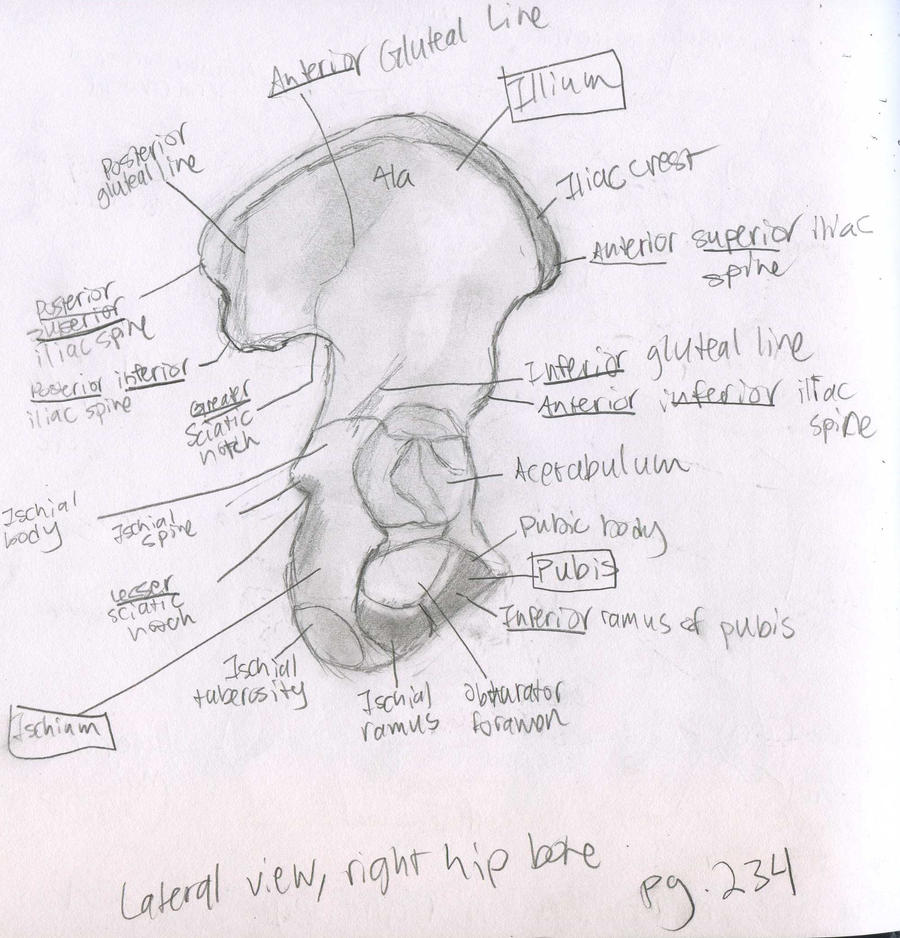 Anterior Gluteal Line
Illium
Posterior
gluteal line
Ala
Iliac crest
Anterior superior iliac
spine
Posterior
superior
iliac spine
Posterior inferior
iliac spine
Greater
sciatic
notch
Inferior gluteal line
Anterior inferior iliac
spine
Acetabulum
Ischial
body
Ischial
spine
Pubic body
Pubis
Lesser
sciatic
notch
Inferior ramus of pubis
Ischial
tuberosity
Ischial
ramus
obturator
foramen
Ischium
Lateral view, right hip bone
pg. 234